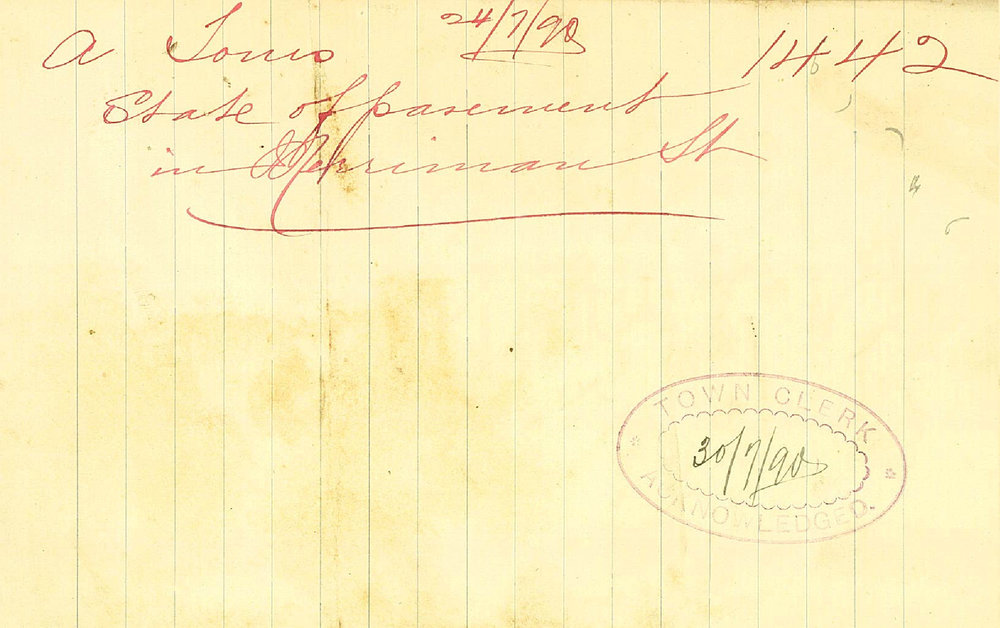 A Tonis 24/7/90 1442
State of pasement
in Merriman St
TOWN CLERK
30/7/90
ACKNOWLEDGED.